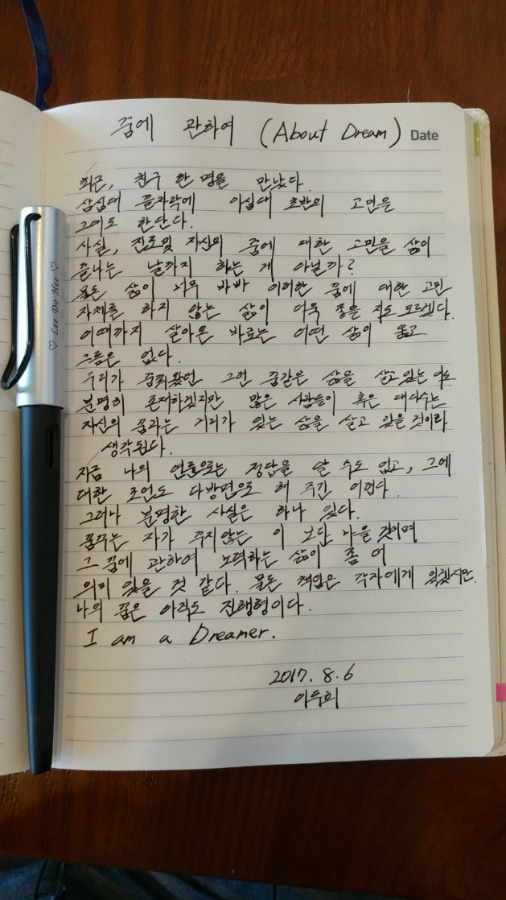 꿈에 관하여 (About Dream) Date
최근, 친구 한 명을 만났다.
삼십대 끝자락에 이십대 초반의 고민을
그여도 한단다.
사실, 진로 및 자신의 꿈에 대한 고민은 삶이
끝나는 날까지 하는 게 아닐까?
물론 삶이 너무 바빠 이러한 꿈에 대한 고민
자체를 하지 않는 삶이 더욱 좋을 지도 모르겠다.
이때까지 살아온 바로는 어떤 삶이 옳고
그름은 없다.
우리가 꿈꿔왔던 그런 꿈같은 삶을 살고 있는 이도
분명히 존재하겠지만 많은 사람들이 혹은 대다수는
자신의 꿈과는 거리가 있는 삶을 살고 있을 것이라
생각된다.
지금 나의 연륜으로는 정답을 알 수도 없고, 그에
대한 조언도 다방면으로 해 주긴 어렵다.
그러나 분명한 사실은 하나 있다.
꿈꾸는 자가 꾸지않는 이 보단 나을 것이며
그 꿈에 관하여 노력하는 삶이 좀 더
의미 있을 것 같다. 물론 책임은 각자에게 있겠지만.
나의 꿈은 아직도 진행형이다.
I am a Dreamer.
2017. 8. 6
이두희
♡ Lee Doo Hee ♡